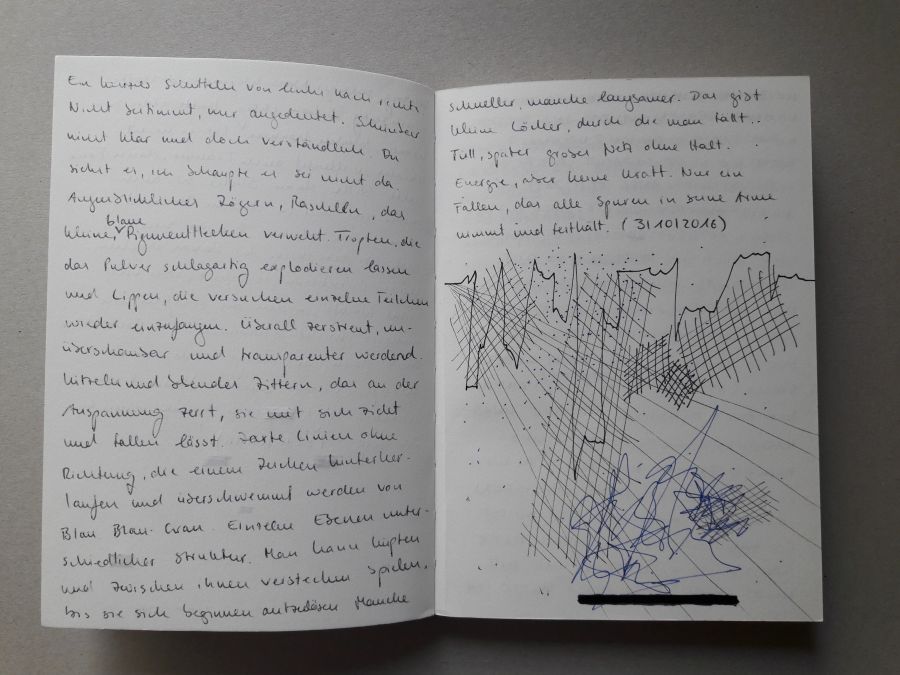 Ein kurzes Schütteln von links nach rechts
Nicht bestimmt, nur angedeutet. Scheinbar
nicht klar und doch verständlich. Du
siehst es, ich behaupte es sei nicht da.
Augenblickliches Zögern, Rascheln, das
blaue
kleine, Pigmentflecken verwischt. Tropfen, die
das Pulver schlagartig explodieren lassen
und Lippen, die versuchen einzelne Teilchen
wieder einzufangen. Überall zerstreut, un-
überschaubar und transparenter werdend.
Kitzeln und bebendes Zittern, das an der
Anspannung zerrt, sie mit sich zieht
und fallen lässt. Zarte Linien ohne
Richtung, die einem Zeichen hinterher-
laufen und überschwemmt werden von
Blau. Blau-Grau. Einzelne Ebenen unter-
schiedlicher Struktur. Man kann hüpfen
und zwischen ihnen verstecken spielen,
bis sie sich beginnen aufzulösen Manche
schneller, manche langsamer. Das gibt
kleine Löcher, durch die man fällt..
Tüll, später grobes Netz ohne Halt.
Energie, aber keine Kraft. Nur ein
Fallen, das alle Spuren in seine Arme
nimmt und festhält. (31|10|2016)